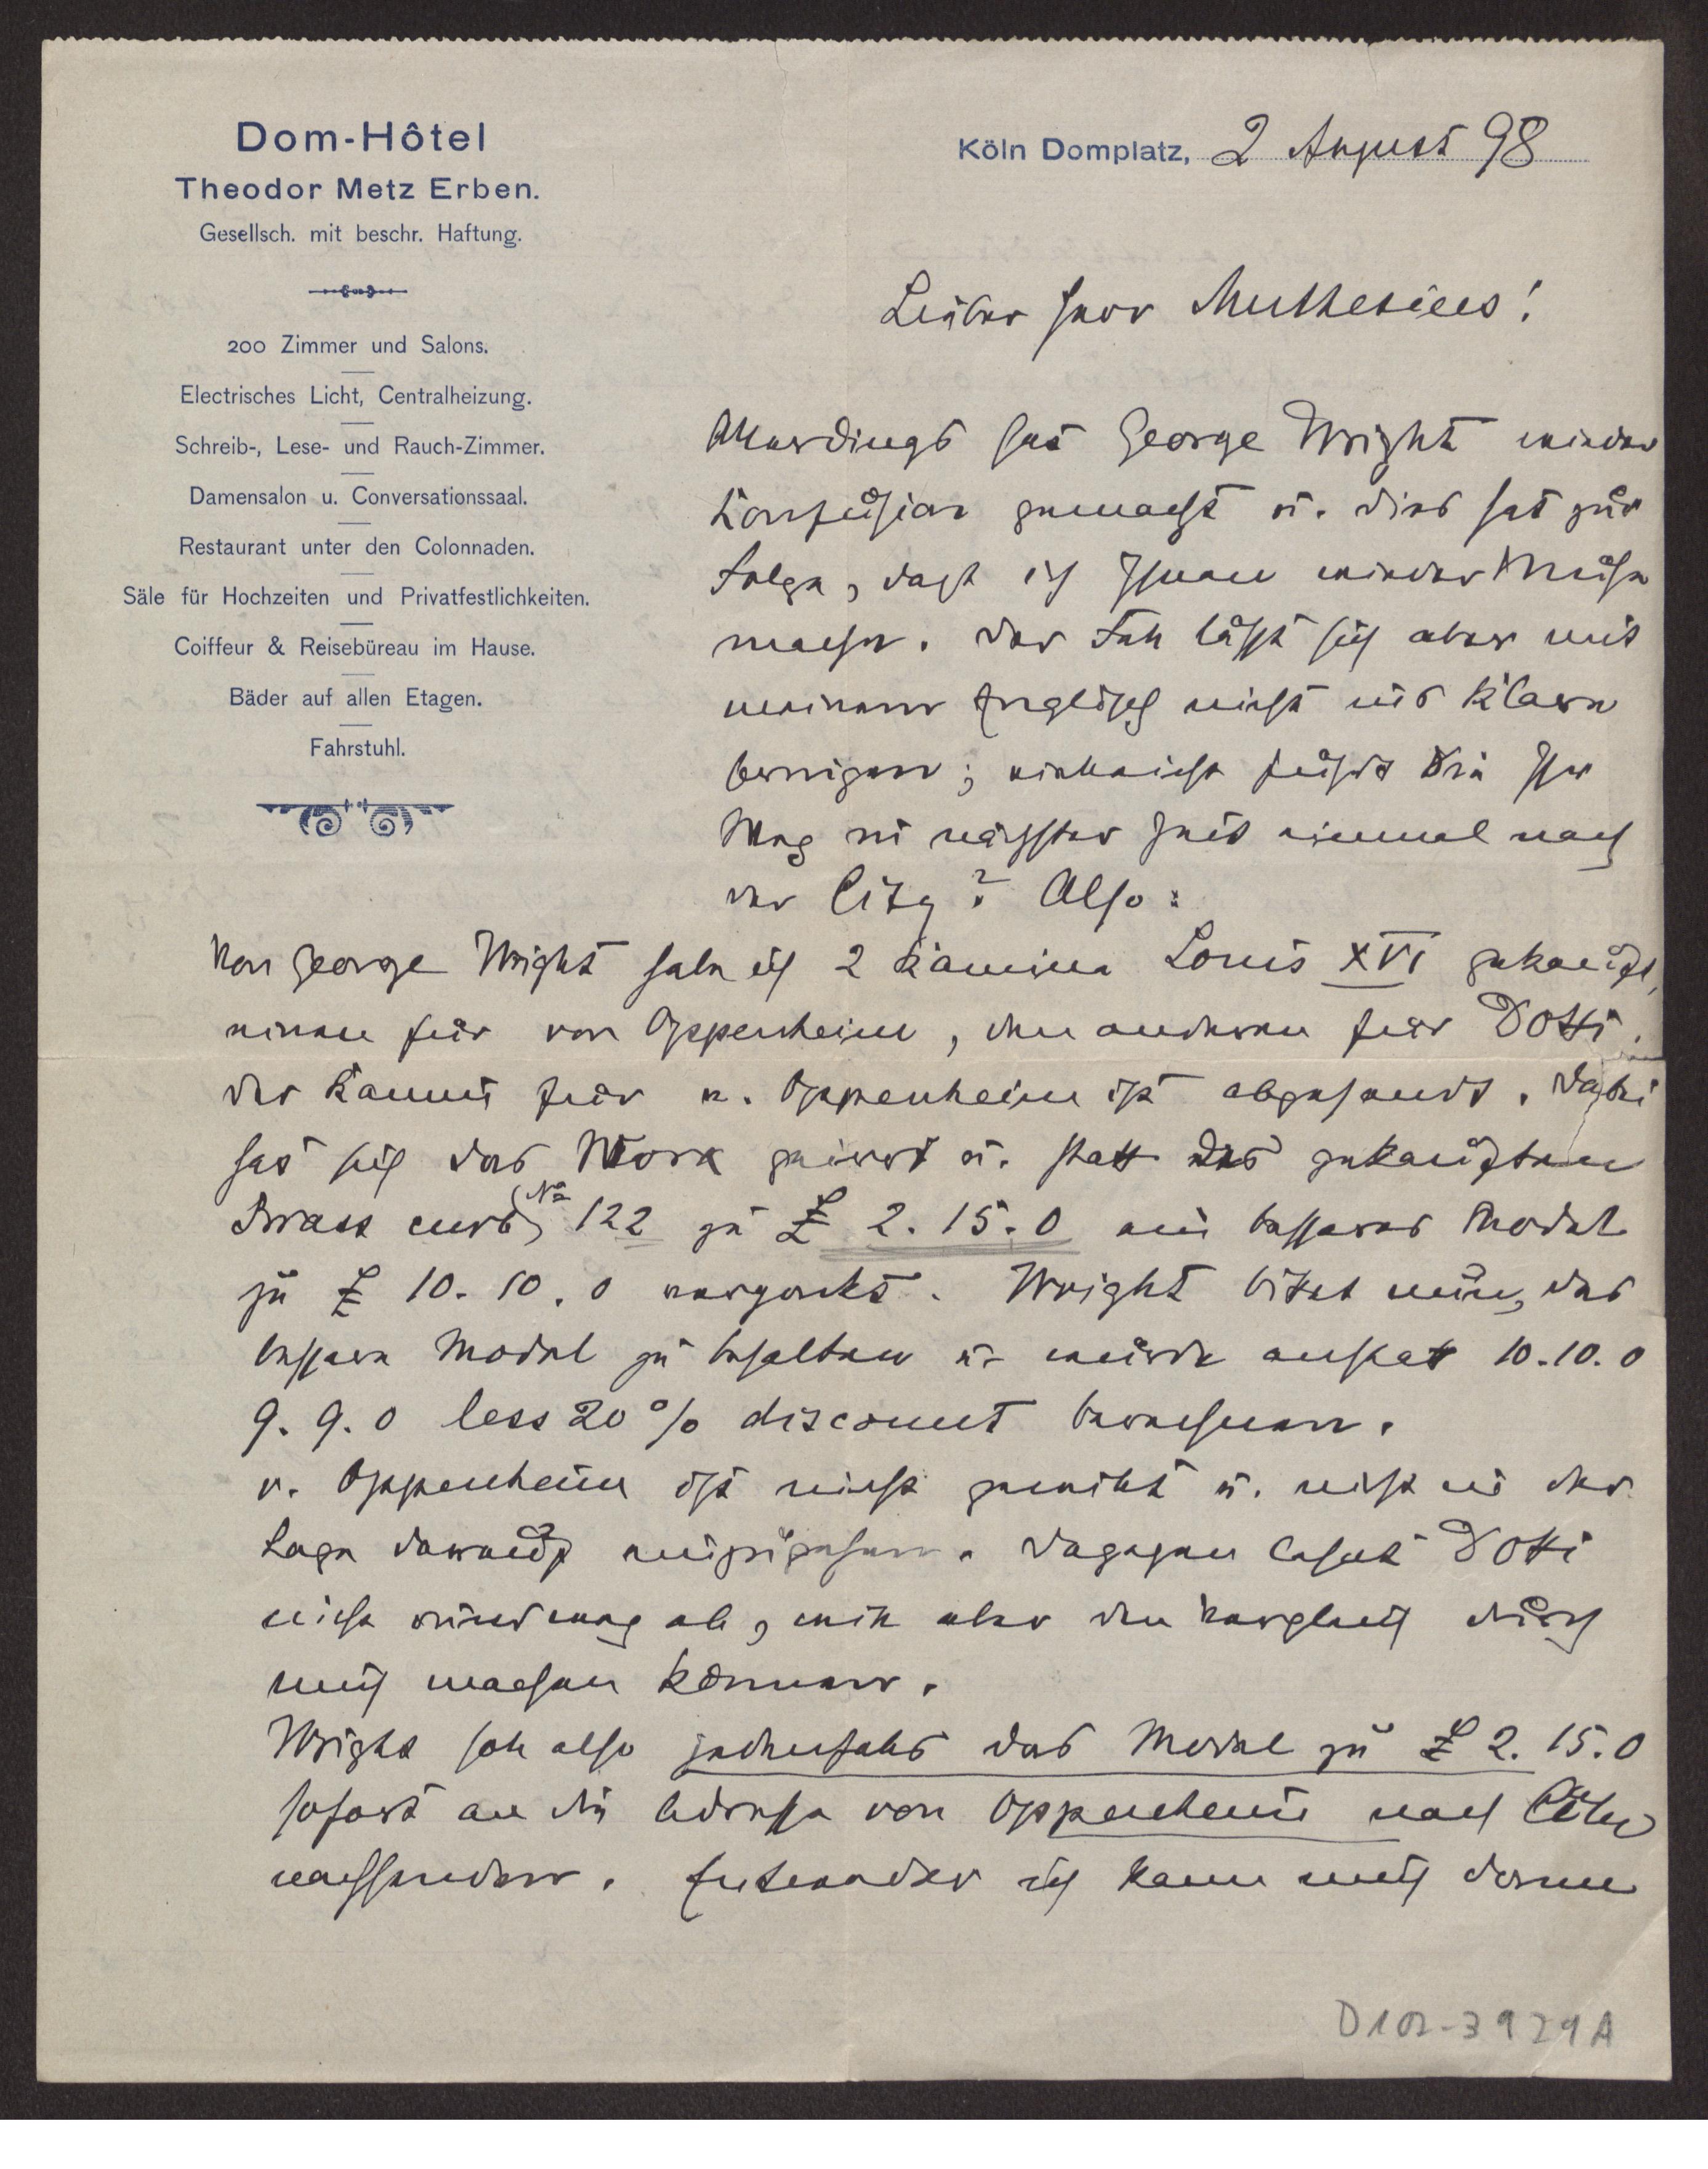 Dom-Hôtel
Theodor Metz Erben.
Gesellsch. mit beschr. Haftung.
200 Zimmer und Salons.
Electrisches Licht, Centralheizung.
Schreib-, Lese- und Rauch-Zimmer.
Damensalon u. Conversationssaal.
Restaurant unter den Colonnaden.
Säle für Hochzeiten und Privatfestlichkeiten.
Coiffeur & Reisebüreau im Hause.
Bäder auf allen Etagen.
Fahrstuhl.
Köln Domplatz, 2 August 98
Lieber Herr Muthesius!
Allerdings hat George Wright wieder
Konfusion gemacht u. dies hat zur
Folge, daß ich Ihnen wieder Mühe
mache. Der Fall läßt sich aber mit
meinem Englisch nicht ins Klare
bringen; vielleicht führt Sie Ihr
Weg in nächster Zeit einmal nach
der City? Also:
Von George Wright habe ich 2 Kamine Louis XVI gekauft,
einen für von Oppenheim, den anderen für Dotti.
Der Kamin für v. Oppenheim ist abgesandt. Dabei
hat sich das Work geirrt u. statt des gekauften
Brass curb, No 122 zu £ 2.15.0 ein besseres Model
zu £ 10.10.0 verpackt. Wright bittet nun, das
bessere Model zu behalten u. würde anstatt 10.10.0
9.9.0 less 20% discount berechnen.
v. Oppenheim ist nicht gewillt u. nicht in der
Lage darauf einzugehen. Dagegen lehnt Dotti
nicht rundweg ab, will aber den Vergleich durch
mich machen können.
Wright soll also jedenfalls das Model zu £ 2.15.0
sofort an die Adresse von Oppenheim nach Cöln
nachsenden. Entweder ich kann mich dann
D102-3929A